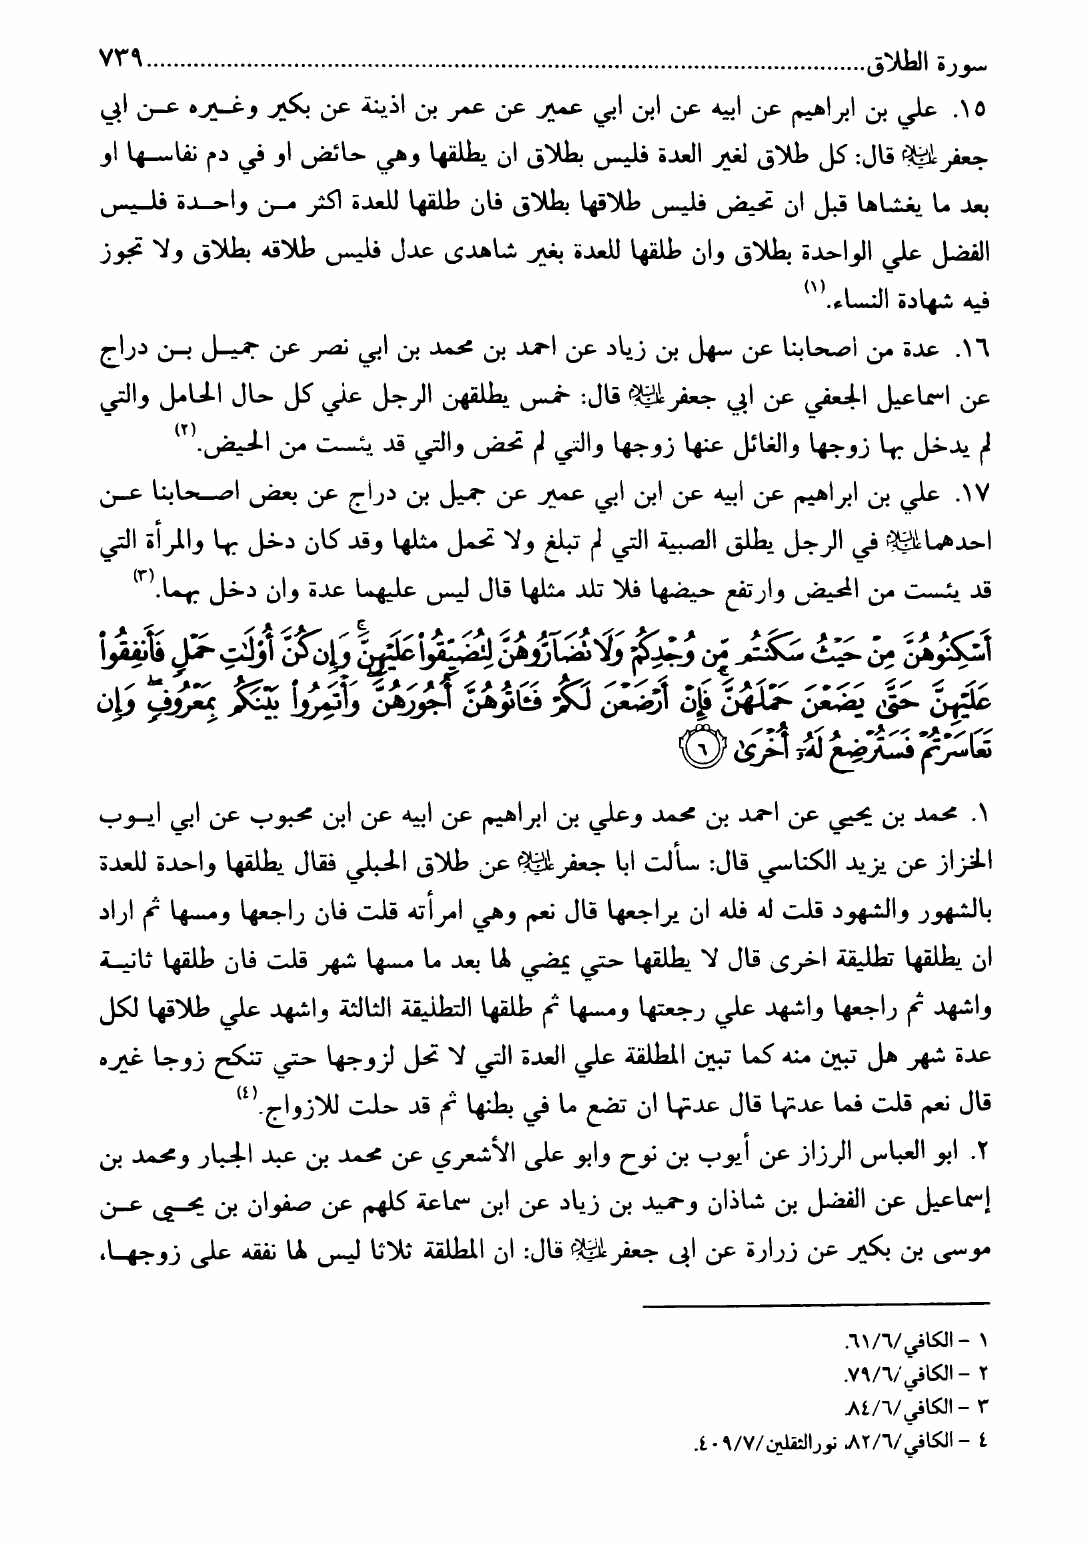 سورة الطلاق ........................................................................................................ ٧٣٩
١٥. علي بن ابراهيم عن ابيه عن ابن ابي عمير عن عمر بن اذينة عن بكير وغيره عن ابي
جعفر عليه السلام قال: كل طلاق لغير العدة فليس بطلاق ان يطلقها وهي حائض او في دم نفاسها او
بعد ما يغشاها قبل ان تحيض فليس طلاقها بطلاق فان طلقها للعدة اكثر من واحدة فليس
الفضل علي الواحدة بطلاق وان طلقها للعدة بغير شاهدى عدل فليس طلاقه بطلاق ولا تجوز
فيه شهادة النساء.(١)
١٦. عدة من اصحابنا عن سهل بن زياد عن احمد بن محمد بن ابي نصر عن جميل بن دراج
عن اسماعيل الجعفي عن ابي جعفر عليه السلام قال: خمس يطلقهن الرجل علي كل حال الحامل والتي
لم يدخل بها زوجها والغائل عنها زوجها والتي لم تحض والتي قد يئست من الحيض.(٢)
١٧. علي بن ابراهيم عن ابيه عن ابن ابي عمير عن جميل بن دراج عن بعض اصحابنا عن
احدهما عليه السلام في الرجل يطلق الصبية التي لم تبلغ ولا تحمل مثلها وقد كان دخل بها والمرأة التي
قد يئست من المحيض وارتفع حيضها فلا تلد مثلها قال ليس عليهما عدة وان دخل بهما.(٣)
أَسْكِنُوهُنَّ مِنْ حَيْثُ سَكَنتُم مِّن وُجْدِكُمْ وَلَا تُضَآرُّوهُنَّ لِتُضَيِّقُوا۟ عَلَيْهِنَّ ۚ وَإِن كُنَّ أُو۟لَٰتِ حَمْلٍ فَأَنفِقُوا۟
عَلَيْهِنَّ حَتَّىٰ يَضَعْنَ حَمْلَهُنَّ ۚ فَإِنْ أَرْضَعْنَ لَكُمْ فَـَٔاتُوهُنَّ أُجُورَهُنَّ ۖ وَأْتَمِرُوا۟ بَيْنَكُم بِمَعْرُوفٍ ۖ وَإِن
تَعَاسَرْتُمْ فَسَتُرْضِعُ لَهُۥٓ أُخْرَىٰ ﴿٦﴾
١. محمد بن يحيي عن احمد بن محمد وعلي بن ابراهيم عن ابيه عن ابن محبوب عن ابي ايوب
الخزاز عن يزيد الكناسي قال: سألت ابا جعفر عليه السلام عن طلاق الحبلي فقال يطلقها واحدة للعدة
بالشهور والشهود قلت له فله ان يراجعها قال نعم وهي امرأته قلت فان راجعها ومسها ثم اراد
ان يطلقها تطليقة اخرى قال لا يطلقها حتي يمضي لها بعد ما مسها شهر قلت فان طلقها ثانية
واشهد ثم راجعها واشهد علي رجعتها ومسها ثم طلقها التطليقة الثالثة واشهد علي طلاقها لكل
عدة شهر هل تبين منه كما تبين المطلقة علي العدة التي لا تحل لزوجها حتي تنكح زوجا غيره
قال نعم قلت فما عدتها قال عدتها ان تضع ما في بطنها ثم قد حلت للازواج.(٤)
٢. ابو العباس الرزاز عن أيوب بن نوح وابو على الأشعري عن محمد بن عبد الجبار ومحمد بن
إسماعيل عن الفضل بن شاذان وحميد بن زياد عن ابن سماعة كلهم عن صفوان بن يحيى عن
موسى بن بكير عن زرارة عن ابى جعفر عليه السلام قال: ان المطلقة ثلاثا ليس لها نفقه على زوجها،
١ – الكافي/٦/٦١.
٢ – الكافي/٦/٧٩.
٣ – الكافي/٦/٨٤.
٤ – الكافي/٦/٨٢، نورالثقلين/٧/٤٠٩.